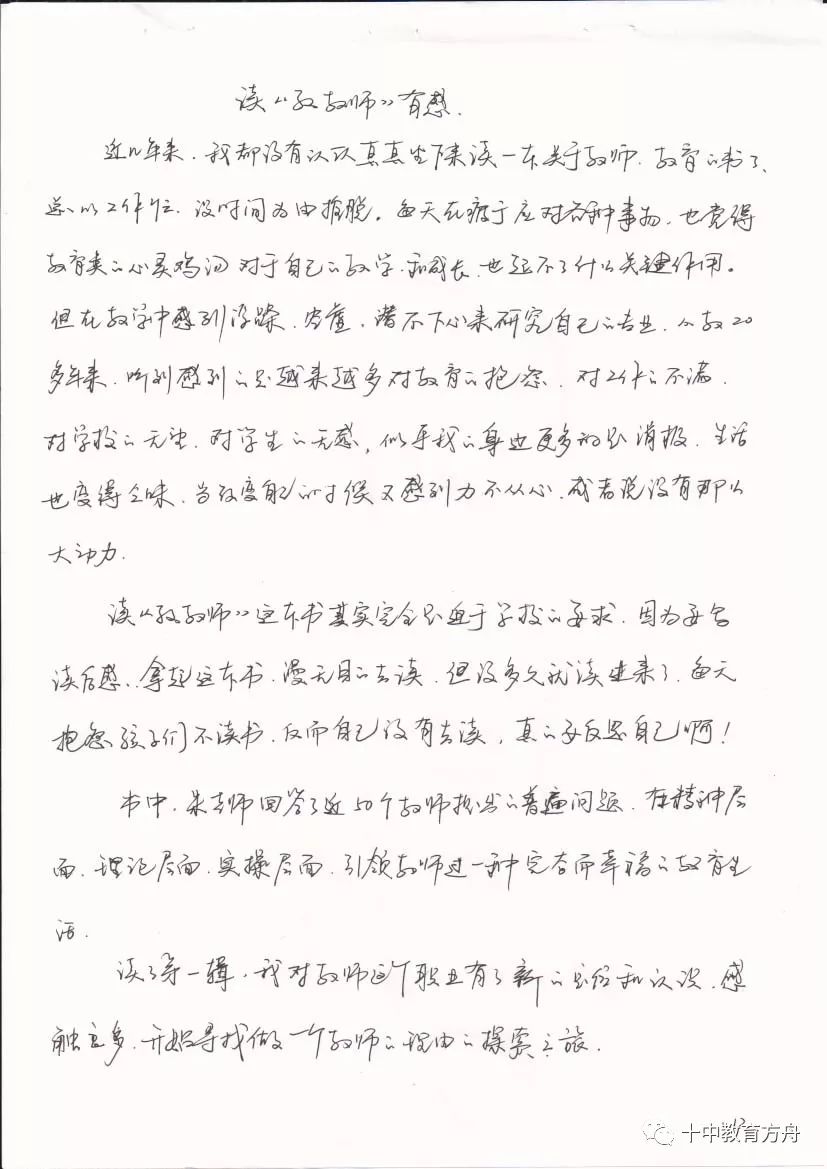 读《致教师》有感.
近几年来,我都没有认认真真坐下来读一本关于教师、教育的书了、
总以工作忙、没时间为由推脱。每天在疲于应对各种事物,也觉得
教育类的心灵鸡汤对于自己的教学和成长,也起不了什么关键作用。
但在教学中感到浮躁、空虚,潜不下心来研究自己的专业,从教20
多年来,听到感到的是越来越多对教育的抱怨、对工作的不满、
对学校的无,对学生的无感,似乎我的身边更多的是消极、生活
也变得乏味、当改变自己的时候又感到力不从心,或者说没有那么
大动力.
读《致教师》这本书其实完全是迫于学校的要求,因为要写
读后感、拿起这本书,漫无目的去读、但没多久就读进来了、每天
抱怨孩子们不读书,反而自己没有去读,真的要反思自己啊!
书中,朱老师回答了近50个教师提出的普遍问题、在精神层
面、理论层面、实操层面,引领教师过一种完整而幸福的教育生
活.
读了第一辑,我对教师这个职业有了新的和认识、感
触良多,开始寻找做一个教师的理由的探索之旅.
12
十中教育方舟